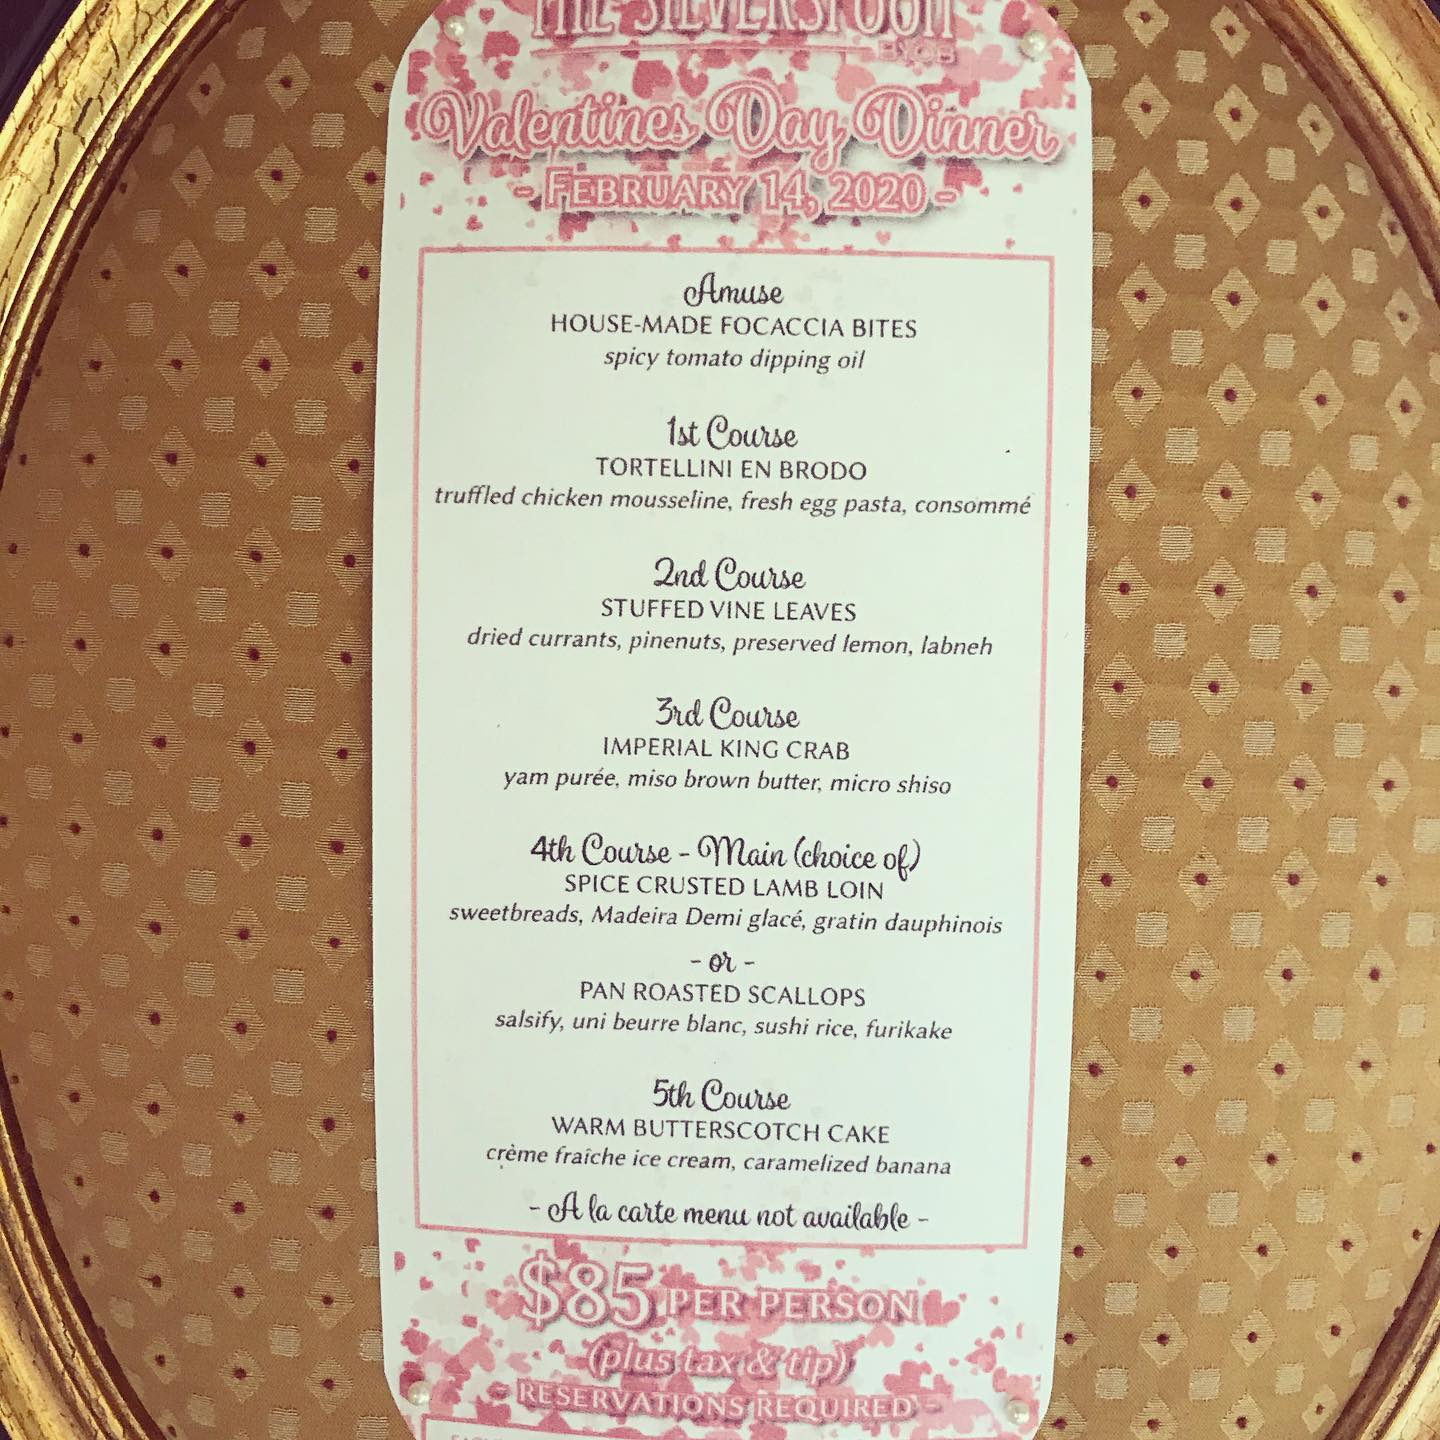 THE SILVERSPOON
BYOB
Valentines Day Dinner
- FEBRUARY 14, 2020 -
Amuse
HOUSE-MADE FOCACCIA BITES
spicy tomato dipping oil
1st Course
TORTELLINI EN BRODO
truffled chicken mousseline, fresh egg pasta, consommé
2nd Course
STUFFED VINE LEAVES
dried currants, pinenuts, preserved lemon, labneh
3rd Course
IMPERIAL KING CRAB
yam purée, miso brown butter, micro shiso
4th Course - Main (choice of)
SPICE CRUSTED LAMB LOIN
sweetbreads, Madeira Demi glacé, gratin dauphinois
- or -
PAN ROASTED SCALLOPS
salsify, uni beurre blanc, sushi rice, furikake
5th Course
WARM BUTTERSCOTCH CAKE
crème fraîche ice cream, caramelized banana
- A la carte menu not available -
$85 PER PERSON
(plus tax & tip)
- RESERVATIONS REQUIRED -